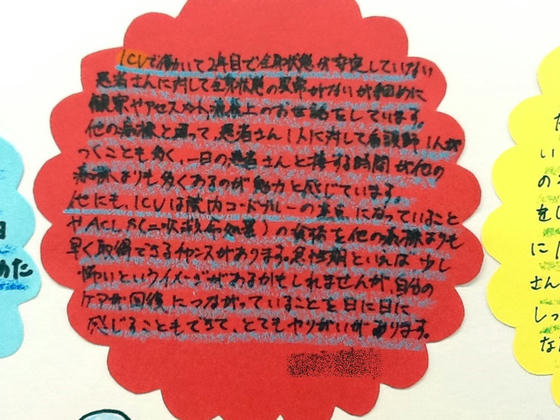 ICUで働いて2年目で全身状態が安定していない
患者さんに対して全身状態の変動がないか細めに
観察やアセスメント、清潔上のお世話をしています。
他の病棟と違って、患者さん1人に対して看護師1人が
つくことも多く、一日の患者さんと接する時間が他の
病棟よりも多くあるのが魅力と感じています。
他にも、ICUは院内コードブルーの
早く取得できるケースがあります。急性期といえば少し
怖いというイメージがあるかもしれませんが、自分の
ケアが回復につながっていることを日に日に
感じることもできて、とてもヤリがいがあります。
日
めた
た
い
の
をし
に
さん
しっ
な